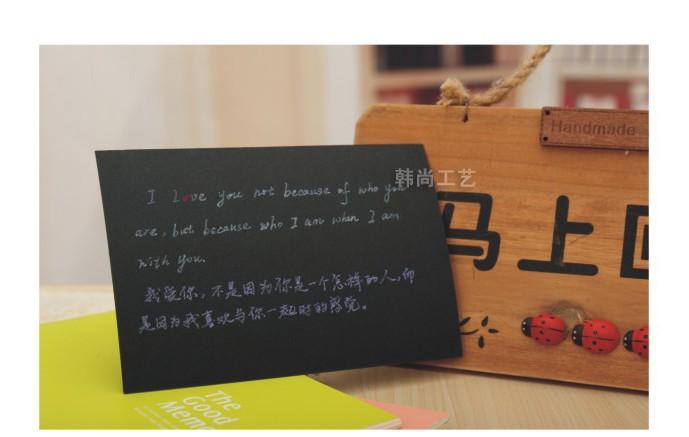 I Love you not because of who you
are, but because who I am when I am
with you.
我爱你，不是因为你是一个怎样的人，而
是因为我喜欢与你一起时的感觉。
韩尚工艺
Handmade
马上回
The
Good
Memo